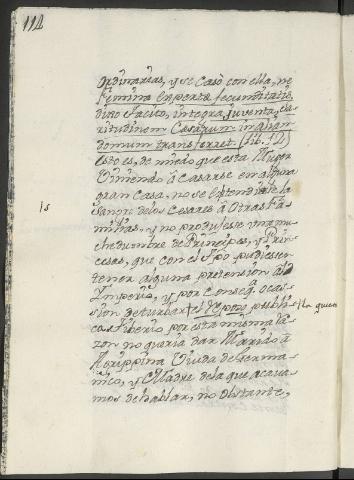 112
ordinarias, y se Casò con ella, ne
fęmina expertæ fecunditatis,
dixo Tacito, integra juventa, cla
ritudinem Cæsarum in aliam
domum transferret. (lib. 14)
esto es, de miedo que esta Muger
Viniendo à Casarse en alguna
gran Casa, no se extendiese la
Sangre delos Cesares à Otras Fa
milias, y no produxesse una mu
chedumbre de Principes, y Prin
cesas, que con el tpo pudiessen
tener alguna pretension al
Imperio, y por conseqª ocas
sion de turbar el reposo publi
co. Tiberio por esta misma ra
zon no queria dar Marido à
Agrippina Viuda de Germa
nico, y Madre dela que acava
mos de hablar, no obstante,